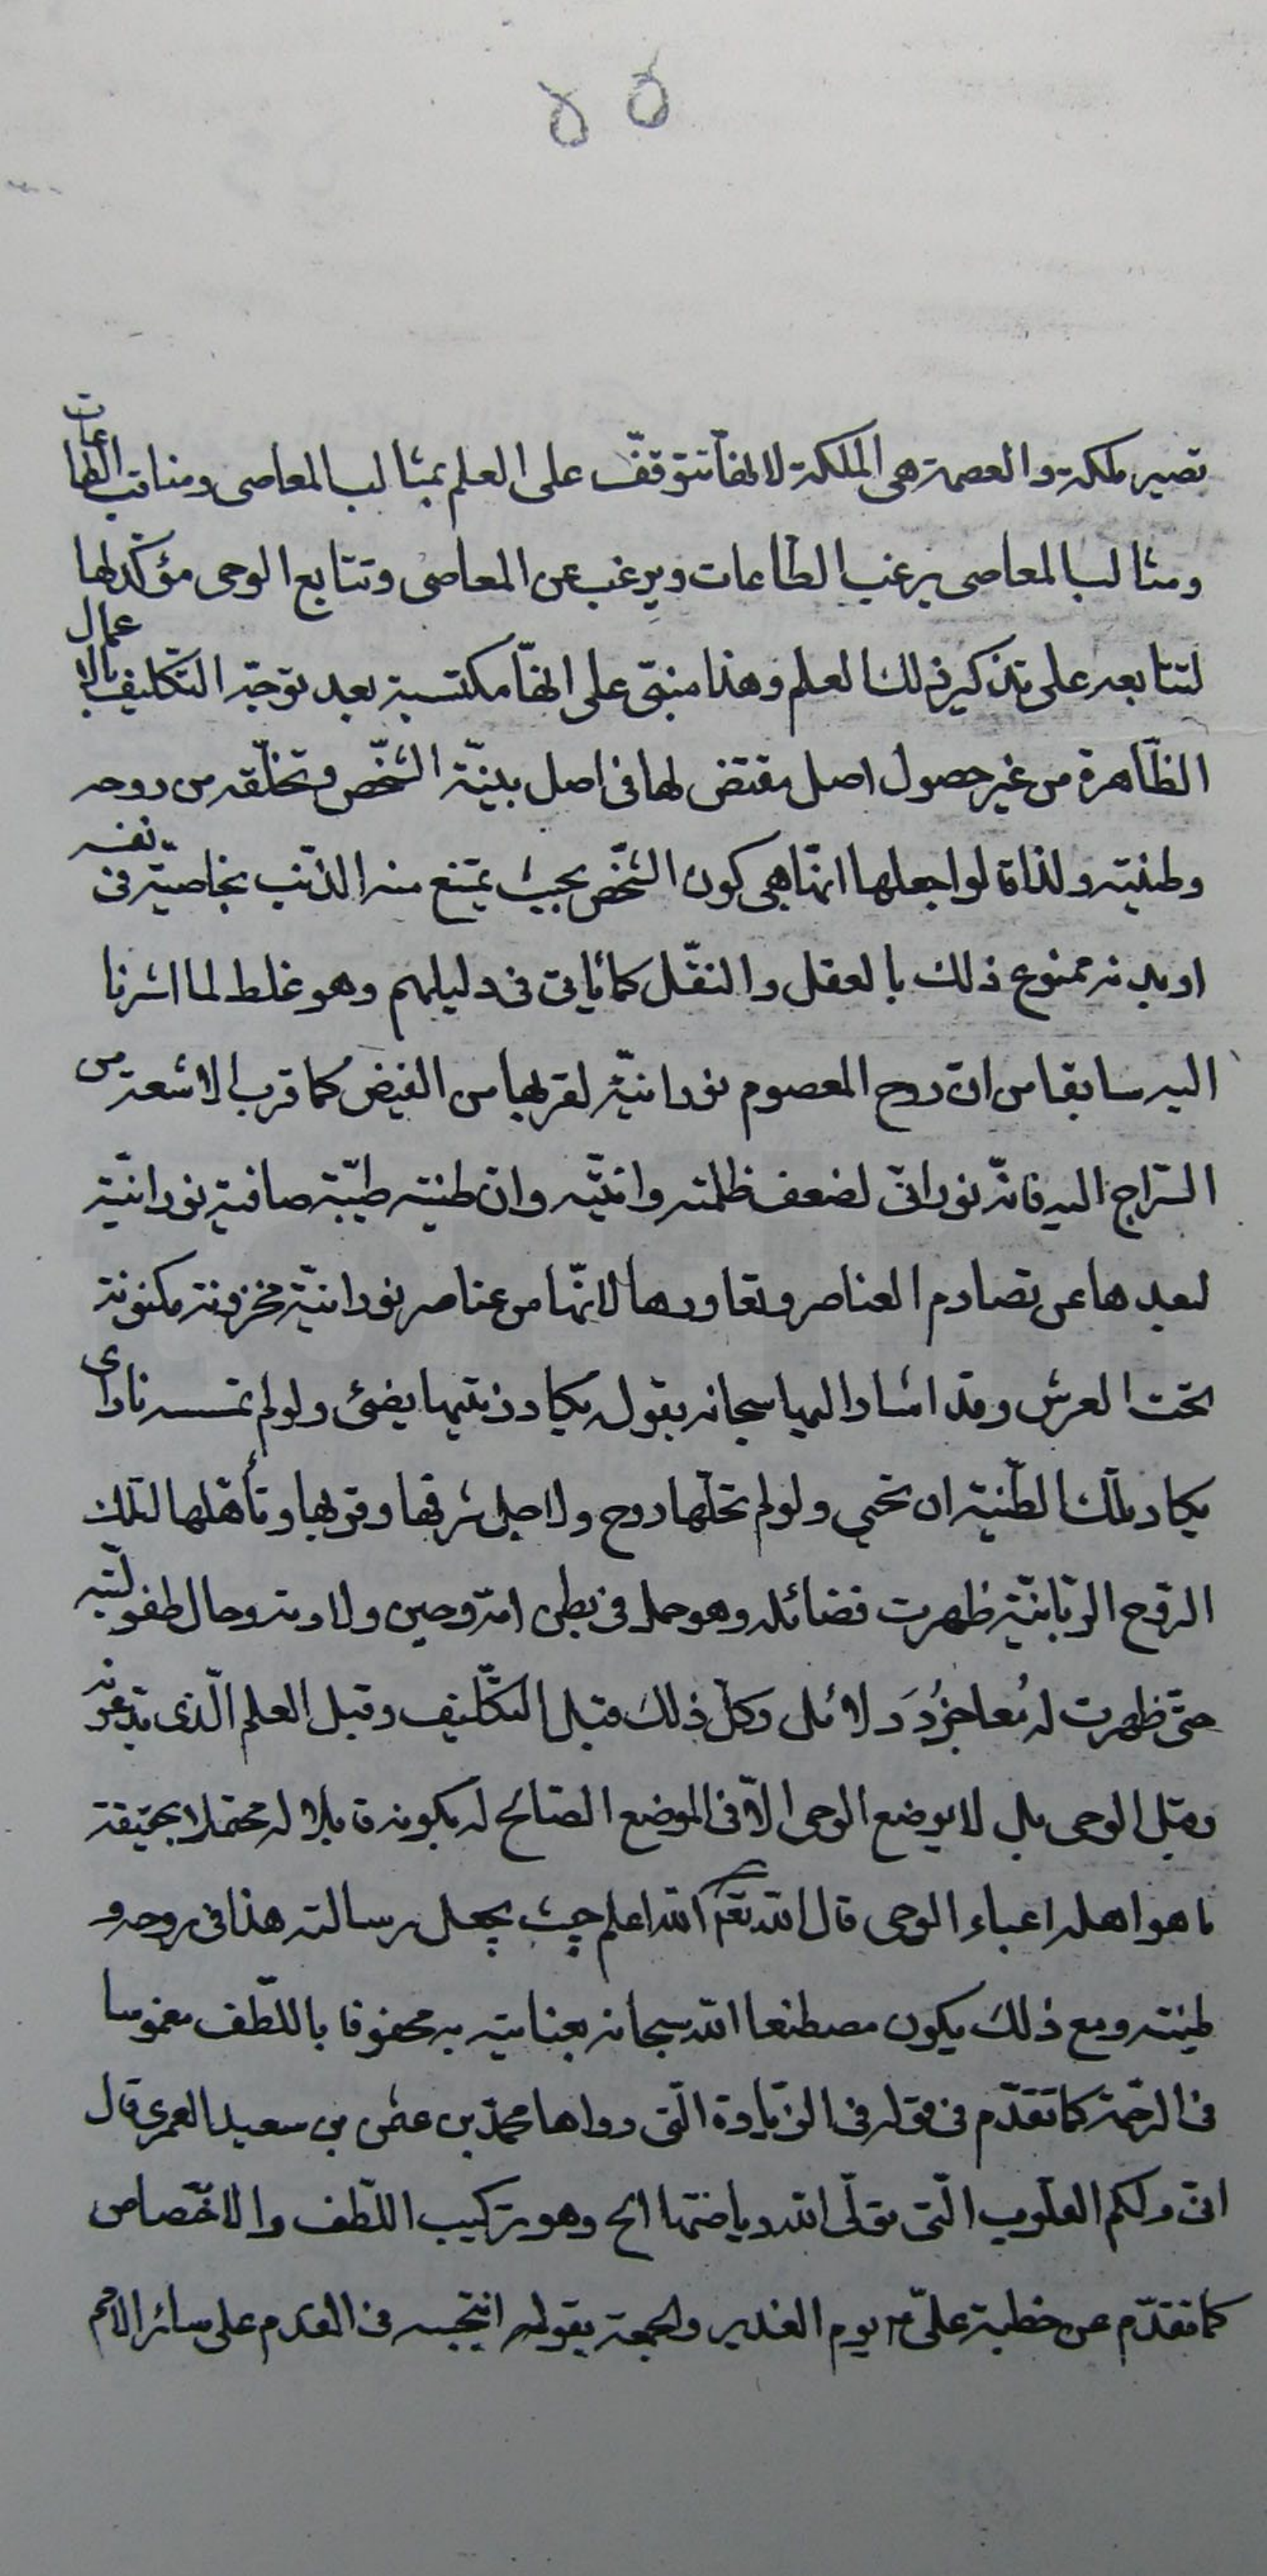 ٥٥
تصير ملكة والعصمة هي الملكة لانها تتوقف على العلم بمثالب المعاصى ومناقب الطاعات
ومثالب المعاصى يرغب الطاعات ويرغب عن المعاصى وتتابع الوحى مؤكد لها
لتتابعه على تذكير ذلك العلم وهذا مبنى على انها مكتسبة بعد توجه التكليف بالاعمال
الظاهرة من غير حصول اصل مقتض لها فى اصل بنية الشخص وتخلقه من روحه
وطينته ولذا قالوا جعلها انما هى كون الشخص بحيث يمتنع منه الذنب بخاصية فى نفسه
او بدنه ممنوع ذلك بالعقل والنقل كما يأتى فى دليلهم وهو غلط لما اشرنا
اليه سابقا من ان روح المعصوم نورانية لقربها من الفيض كما قرب الاشعة من
السراج اليه فانه نورانى لضعف ظلمته وانيته وان طينته طيبة صافية نورانية
لبعدها عن تصادم العناصر وتعاورها لانها من عناصر نورانية مخزونة مكنونة
تحت العرش وقد اشار اليها سبحانه بقوله يكاد زيتها يضئ ولو لم تمسسه نار اى
يكاد تلك الطينة ان تحيى ولو لم تحلها روح ولاجل شرفها وقربها وتأهلها لتلك
الروح الربانية ظهرت فضائله وهو حمل فى بطن امه وحين ولادته وحال طفوليته
حتى ظهرت له معاجز ودلائل وكل ذلك قبل التكليف وقبل العلم الذى يدعونه
وقبل الوحى بل لا يوضع الوحى الا فى الموضع الصالح له بكونه قابلا له محتملا بحقيقة
ما هو اهله اعباء الوحى قال الله تعالى الله اعلم حيث يجعل رسالته هذا فى روحه و
طينته ومع ذلك يكون مصطنعا الله سبحانه بعنايته به محفوفا باللطف مغموسا
فى الرحمة كما تقدم فى قوله فى الزيارة التى رواها محمد بن عثمن بن سعيد العمرى قال
انى ولكم القلوب التى تولى الله رياضتها الخ وهو تركيب اللطف والاختصاص
كما تقدم عن خطبة على ع يوم الغدير والجمعة بقوله انتجبه فى القدم على سائر الامم